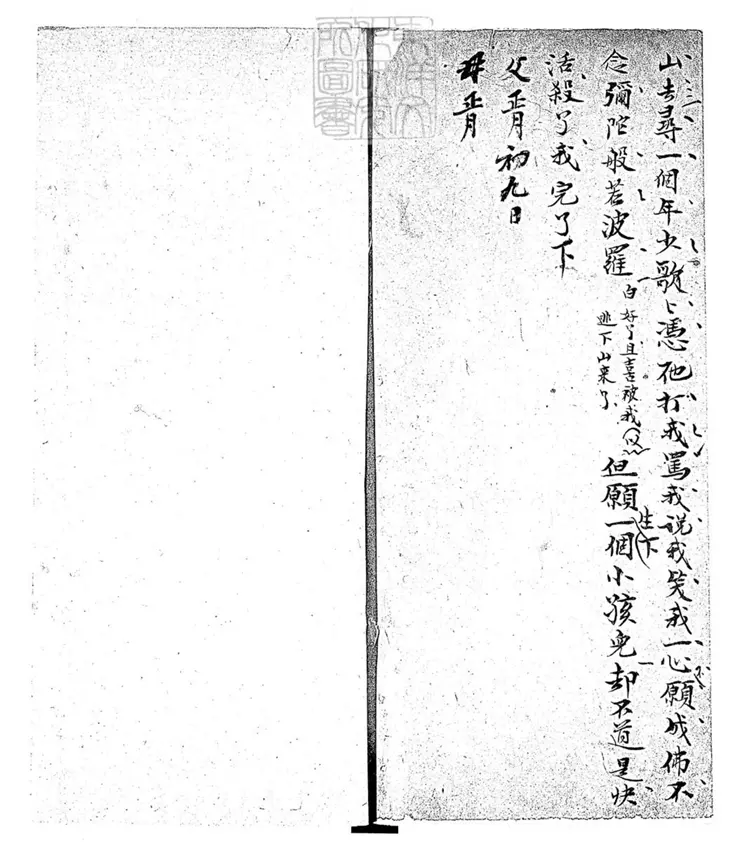 山去尋一個年少歌〻憑他打我罵我說我笑我一心願成佛不
念彌陀般若波羅 白 好了且喜被我
逃下山來了 但願生下一個小孩兒却不道是快
活殺了我完了下
父 正月初九日
母 正月